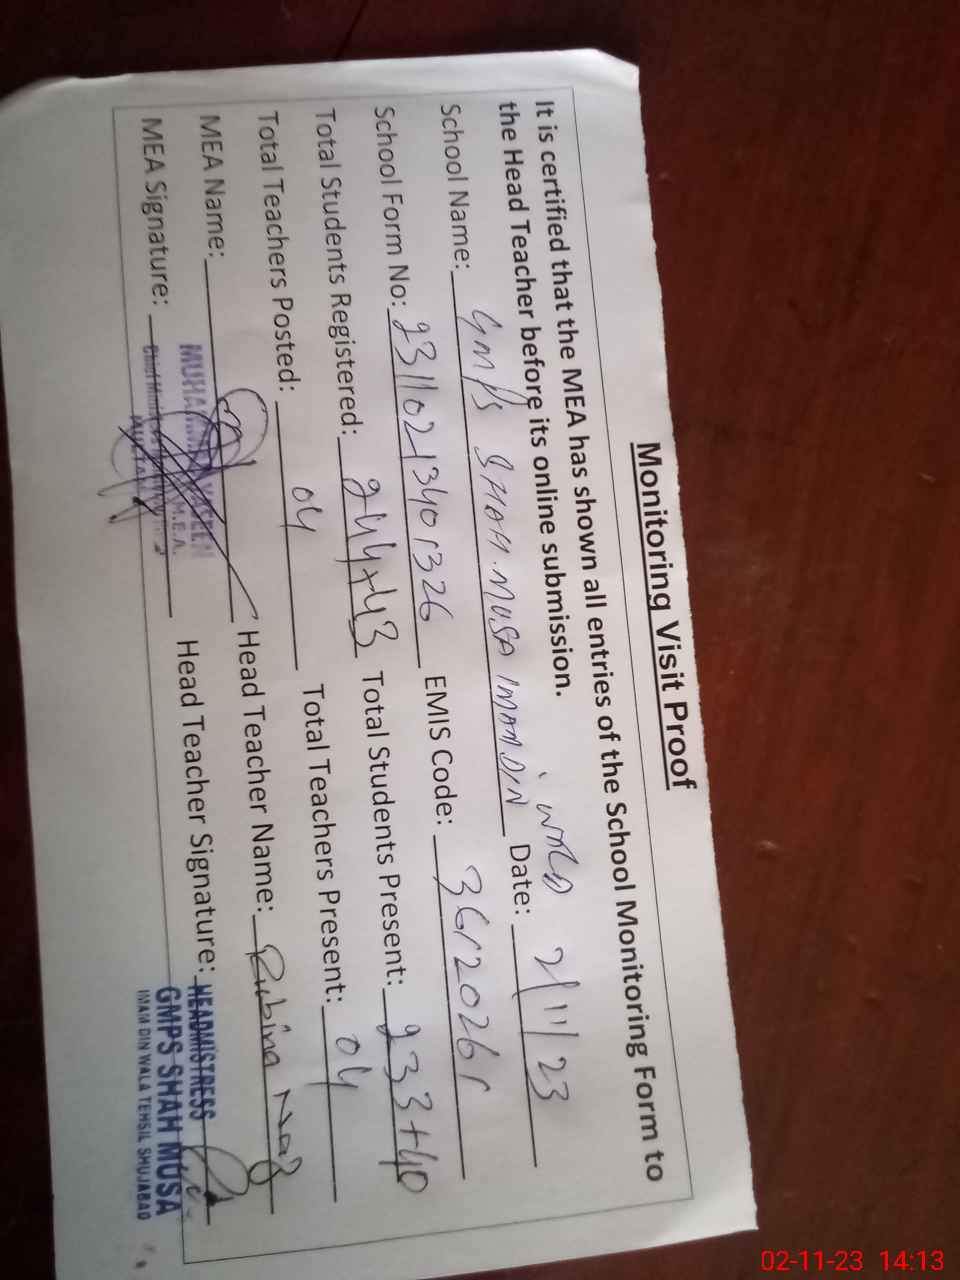 Monitoring Visit Proof
It is certified that the MEA has shown all entries of the School Monitoring Form to
the Head Teacher before its online submission.
School Name: GMPS SHAH MUSA IMAM DIN WALA Date: 2/11/23
School Form No: Total Students Registered: 244+43 Total Students Present: 233+40
EMIS Code:
Total Teachers Posted: 04 Total Teachers Present: 04
MEA Name: Head Teacher Name: Rubina Naz
MEA Signature: Head Teacher Signature:
MUHAMMAD M.E.A.
HEADMISTRESS
GMPS SHAH MUSA
IMAM DIN WALA TEHSIL SHUJABAD
02-11-23 14:13